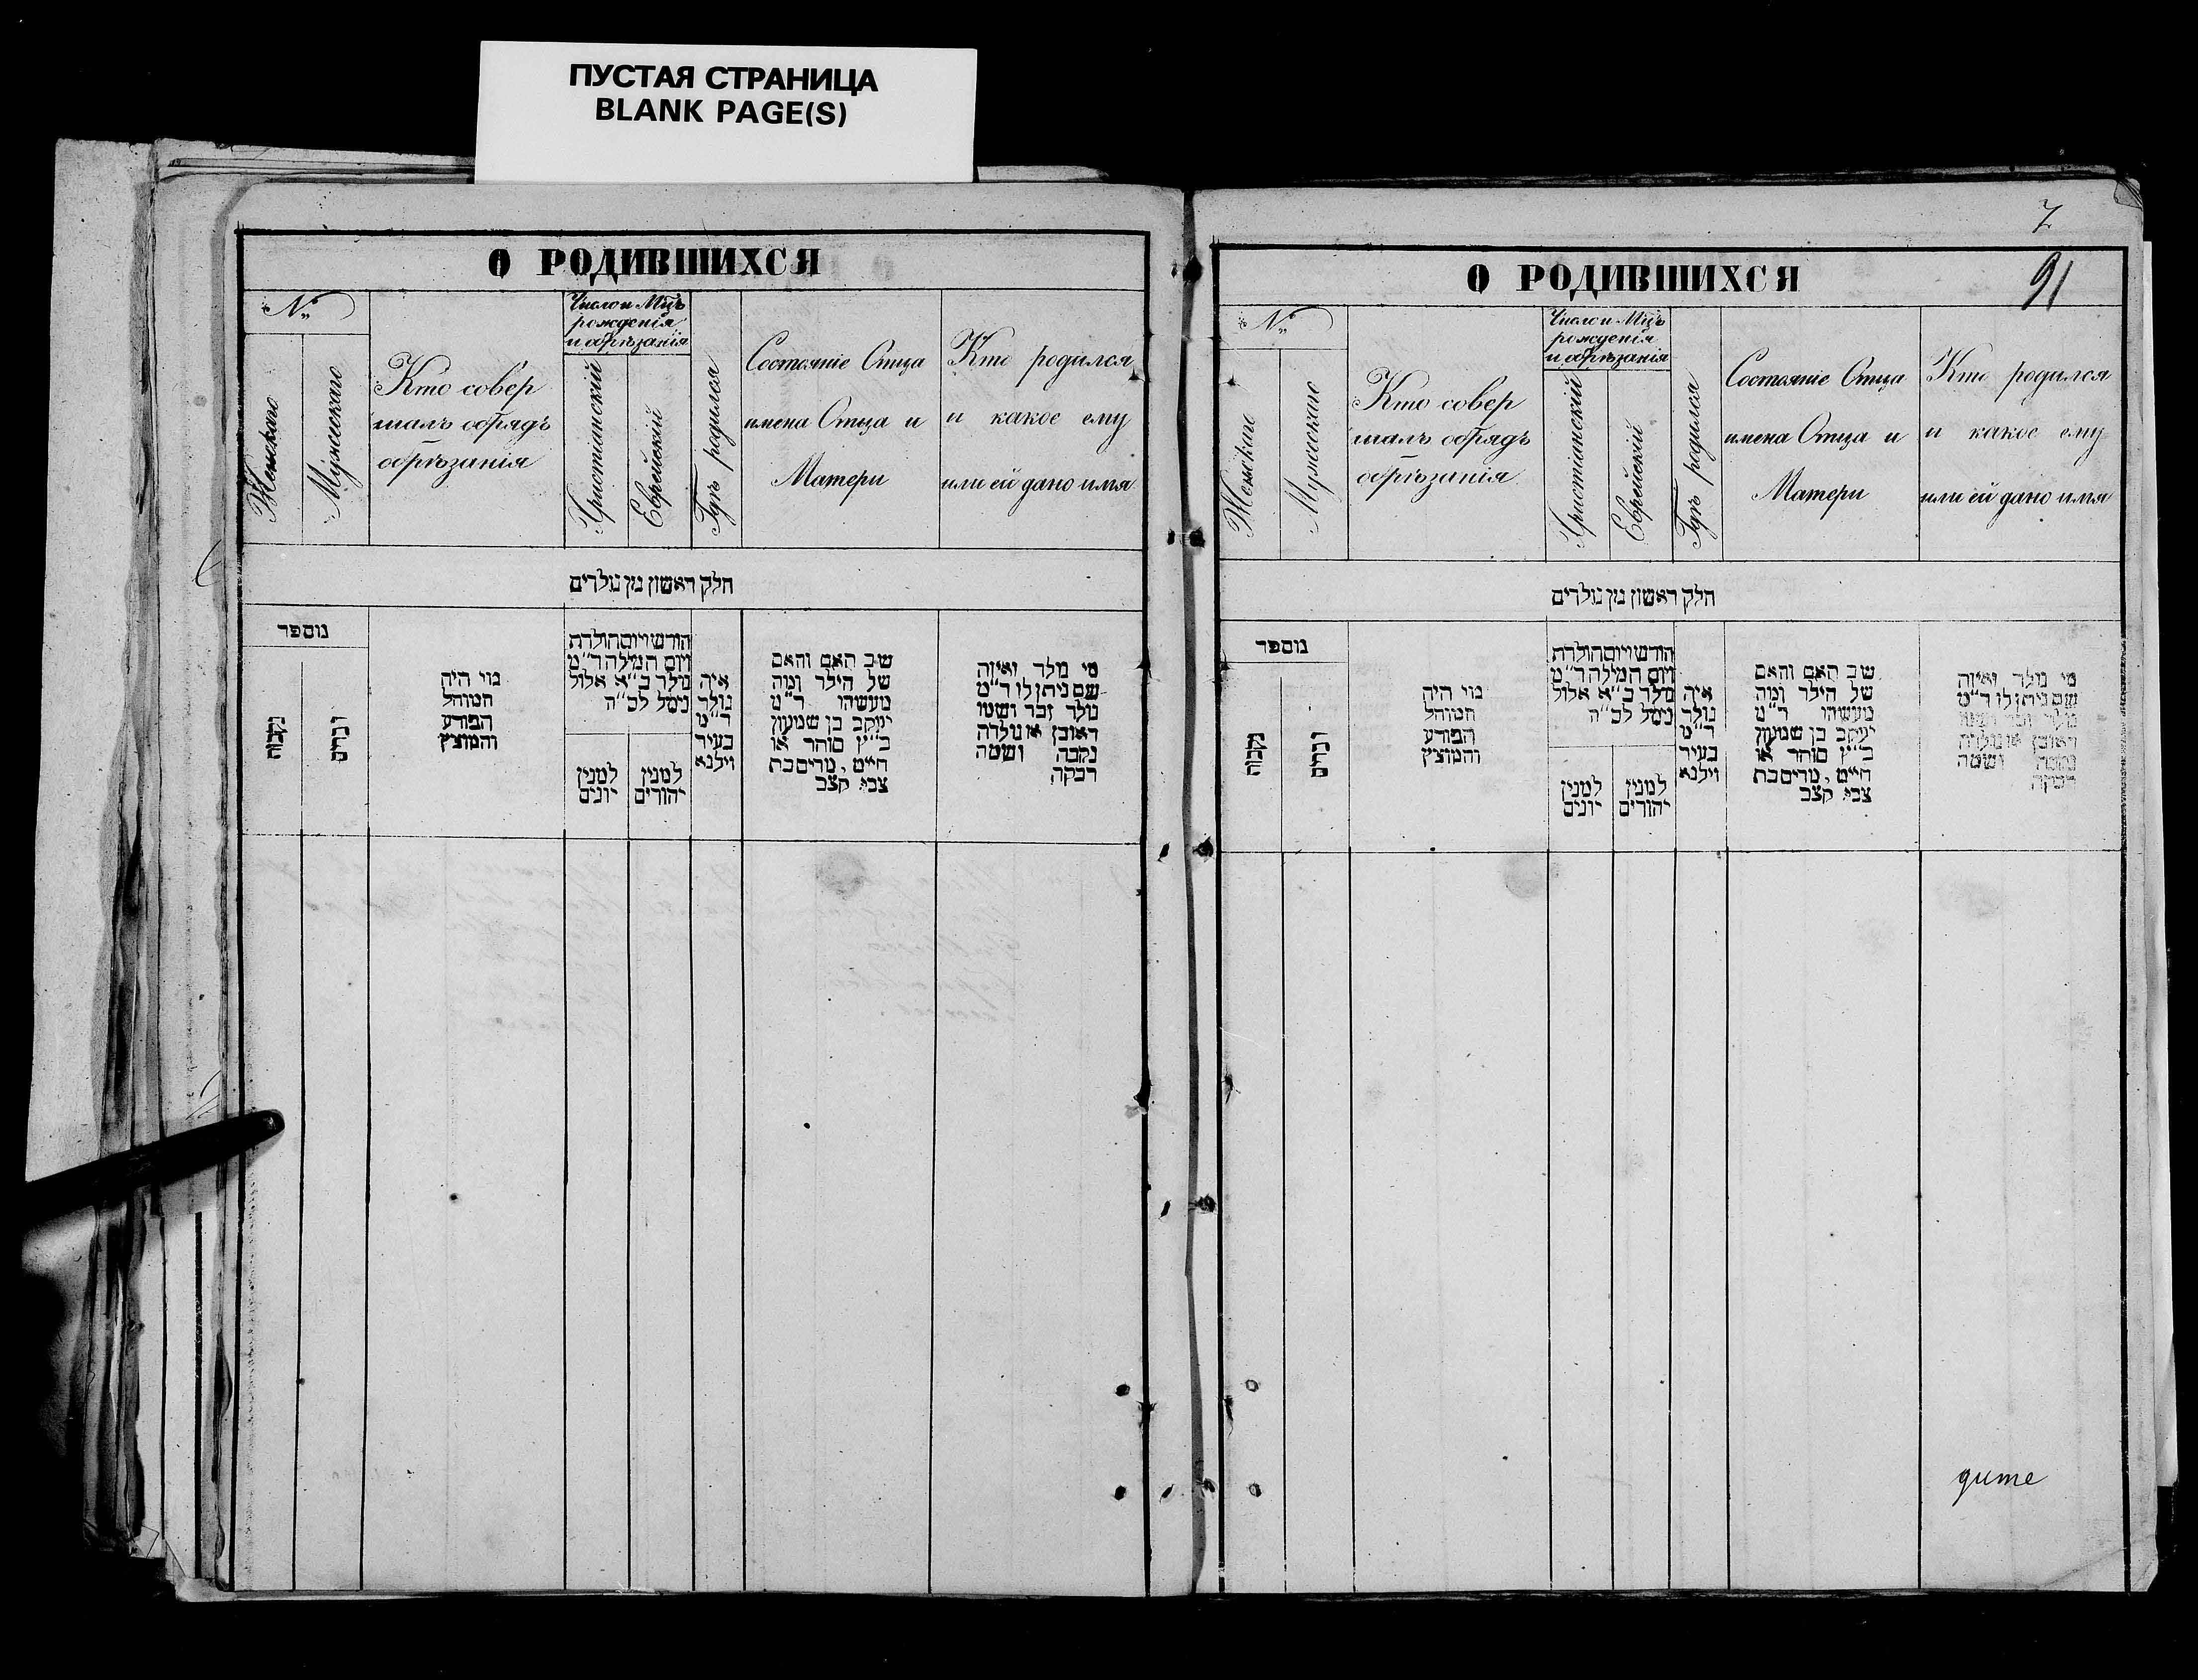 ПУСТАЯ СТРАНИЦА
BLANK PAGE(S)
О РОДИВШИХСЯ
№
Женскаго
Мужескаго
Кто совер
шалъ обрядъ
обрѣзанія
Число и Мцъ
рожденія
и обрѣзанія
Христіанскій
Еврейскій
Гдѣ родился
Состояніе Отца
имена Отца и
Матери
Кто родился
и какое ему
или ей дано имя
חלק ראשון מן נולדים
מספר
נקבות
זכרים
מי היה
המוהל
הפורע
והמוצץ
חודש ויום הולדת
ויום המילה ד״מ
נולד כ״א אלול
נימל לכ״ה
למנין
יונים
למנין
יהודים
איה
נולד
ד״מ
בעיר
וילנא
שם האם והאם
של הילד ומה
מעשהו ד״מ
יעקב בן שמעון
כ״ץ סוחר או
חייט, מרים בת
צבי קצב
מי נולד ואיזה
שם ניתן לו ד״מ
נולד זכר ושמו
ראובן או נולדה
נקבה ושמה
רבקה
7
91
О РОДИВШИХСЯ
№
Женскаго
Мужескаго
Кто совер
шалъ обрядъ
обрѣзанія
Число и Мцъ
рожденія
и обрѣзанія
Христіанскій
Еврейскій
Гдѣ родился
Состояніе Отца
имена Отца и
Матери
Кто родился
и какое ему
или ей дано имя
חלק ראשון מן נולדים
מספר
נקבות
זכרים
מי היה
המוהל
הפורע
והמוצץ
חודש ויום הולדת
ויום המילה ד״מ
נולד כ״א אלול
נימל לכ״ה
למנין
יונים
למנין
יהודים
איה
נולד
ד״מ
בעיר
וילנא
שם האם והאם
של הילד ומה
מעשהו ד״מ
יעקב בן שמעון
כ״ץ סוחר או
חייט, מרים בת
צבי קצב
מי נולד ואיזה
שם ניתן לו ד״מ
נולד זכר ושמו
ראובן או נולדה
נקבה ושמה
רבקה
дите